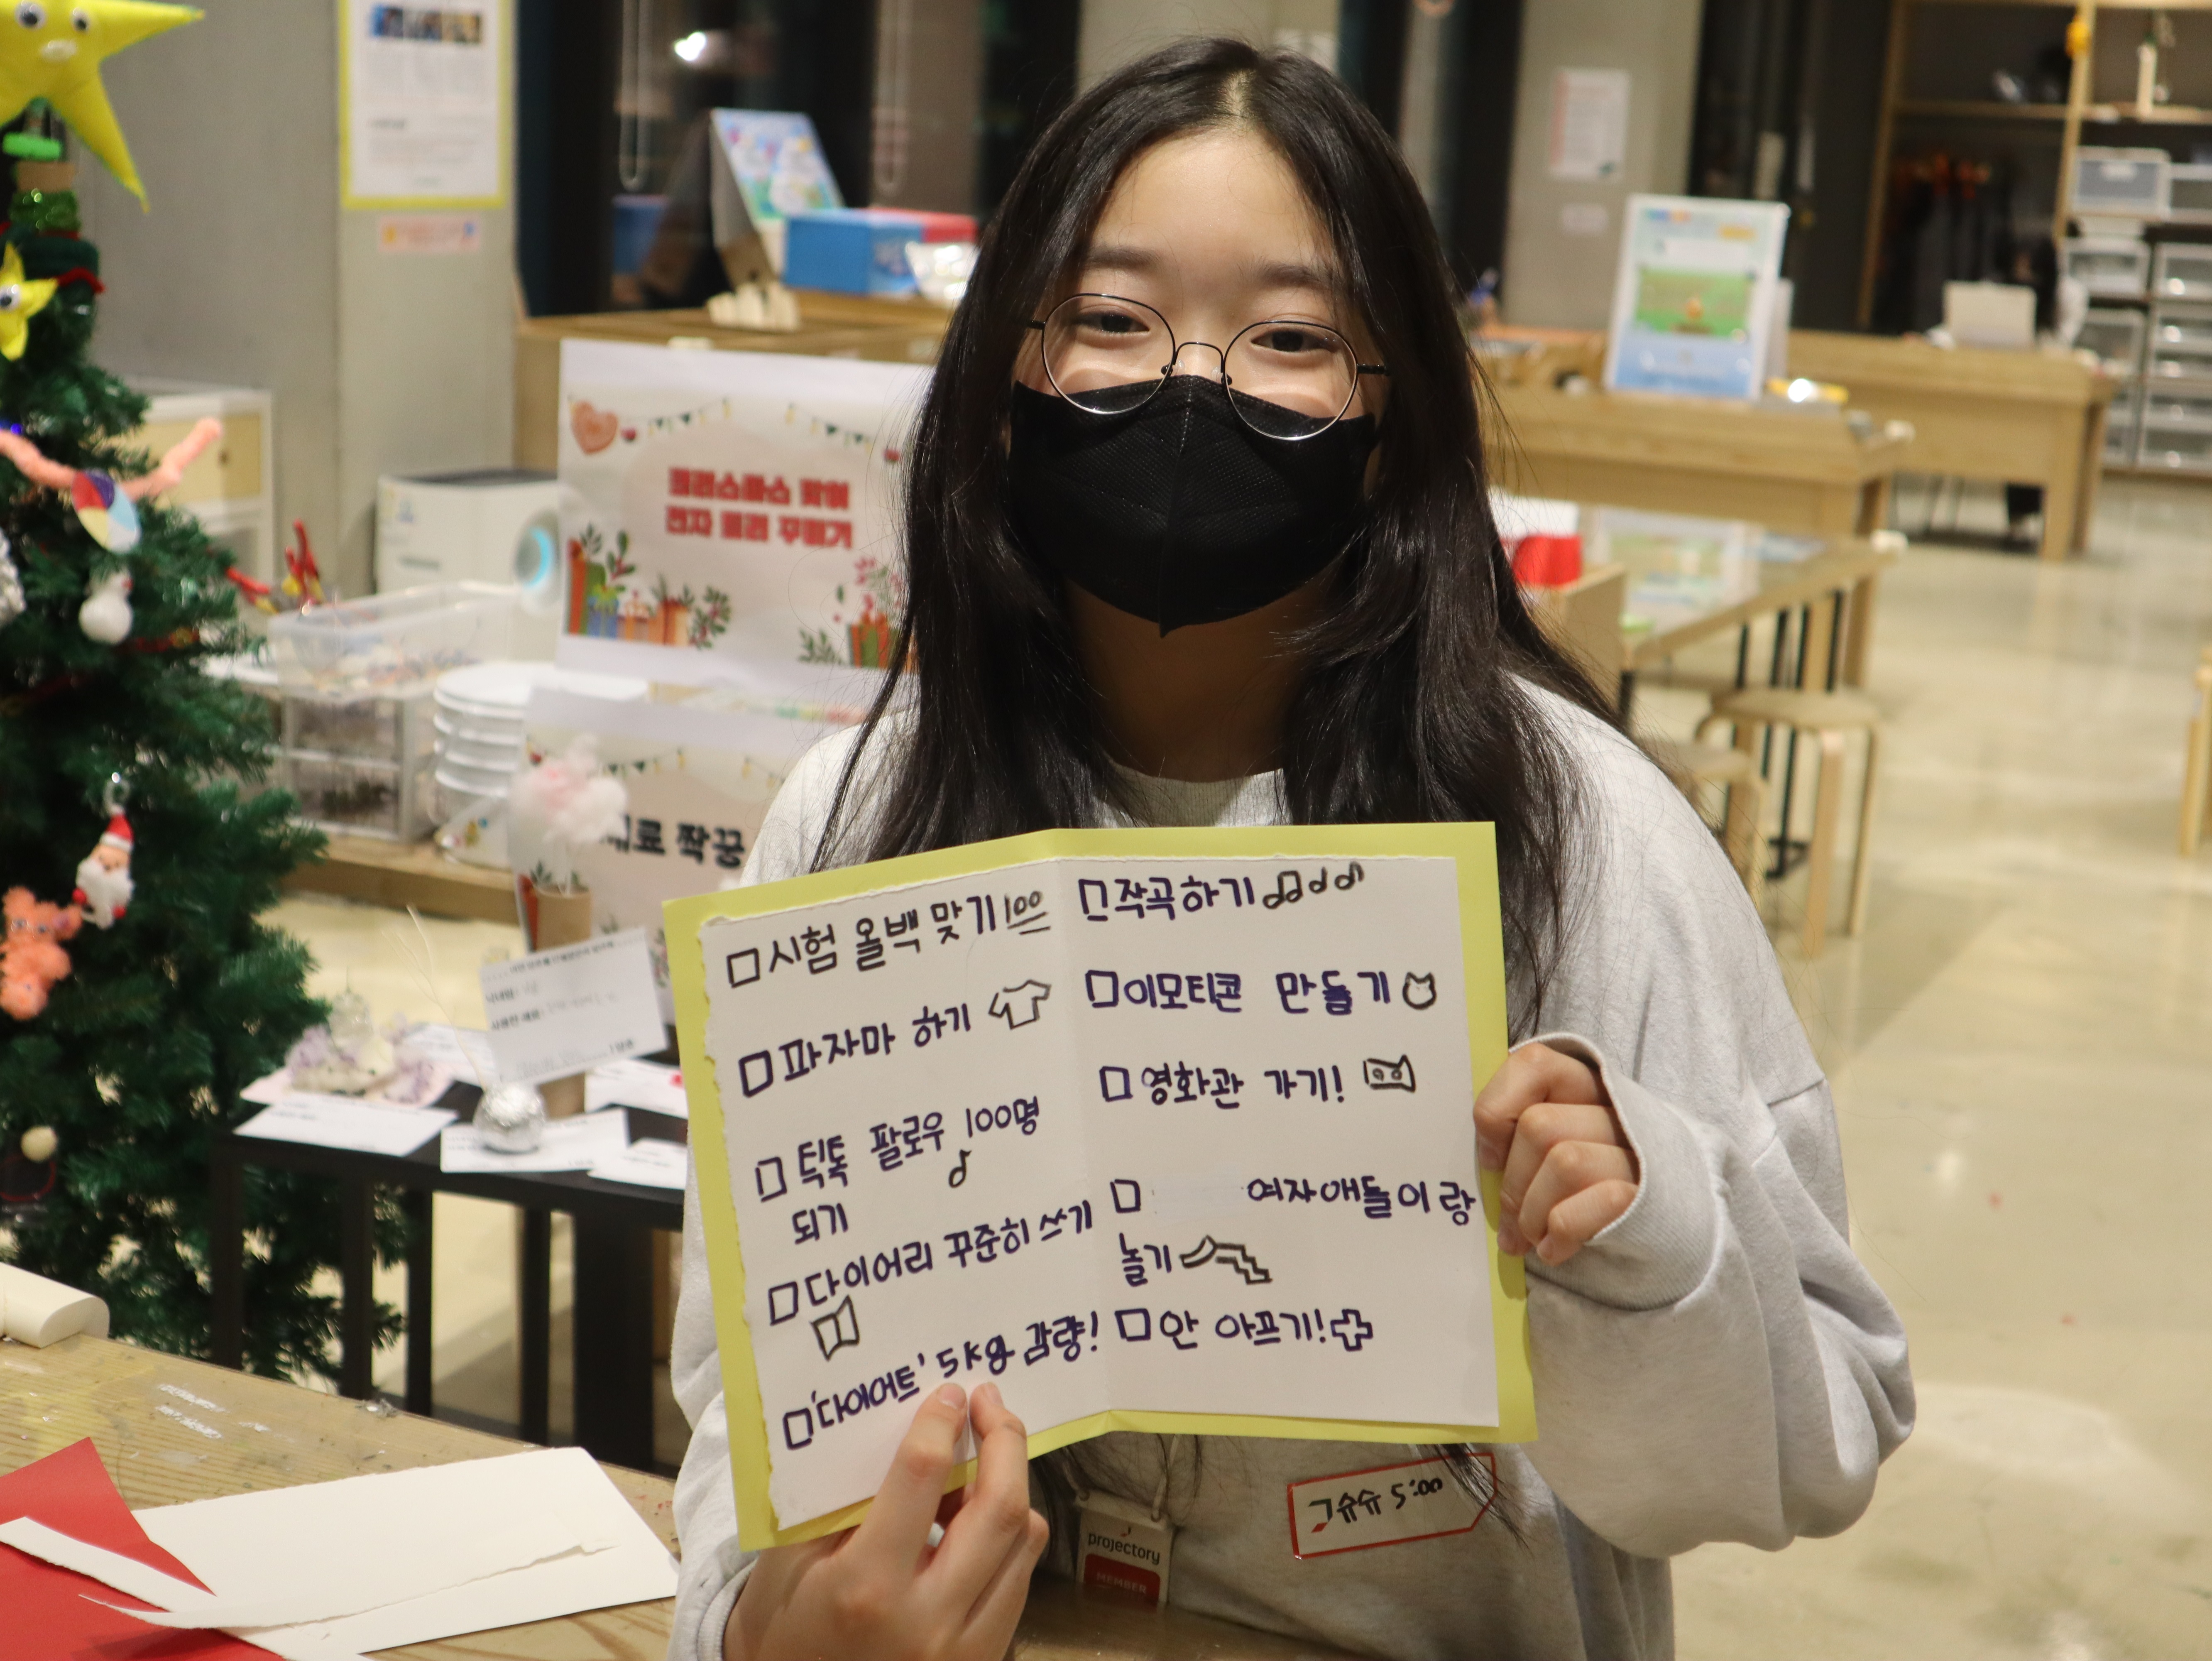 크리스마스 맞이
전자 트리 꾸미기
재료 짝꿍
□시험 올백 맞기 100
□파자마 하기
□틱톡 팔로우 100명
되기
□다이어리 꾸준히 쓰기
□'다이어트' 5kg 감량!
□작곡하기
□이모티콘 만들기
□영화관 가기!
□ 여자애들이랑
놀기
□안 아프기!
projectory
MEMBER
슈슈 5:00